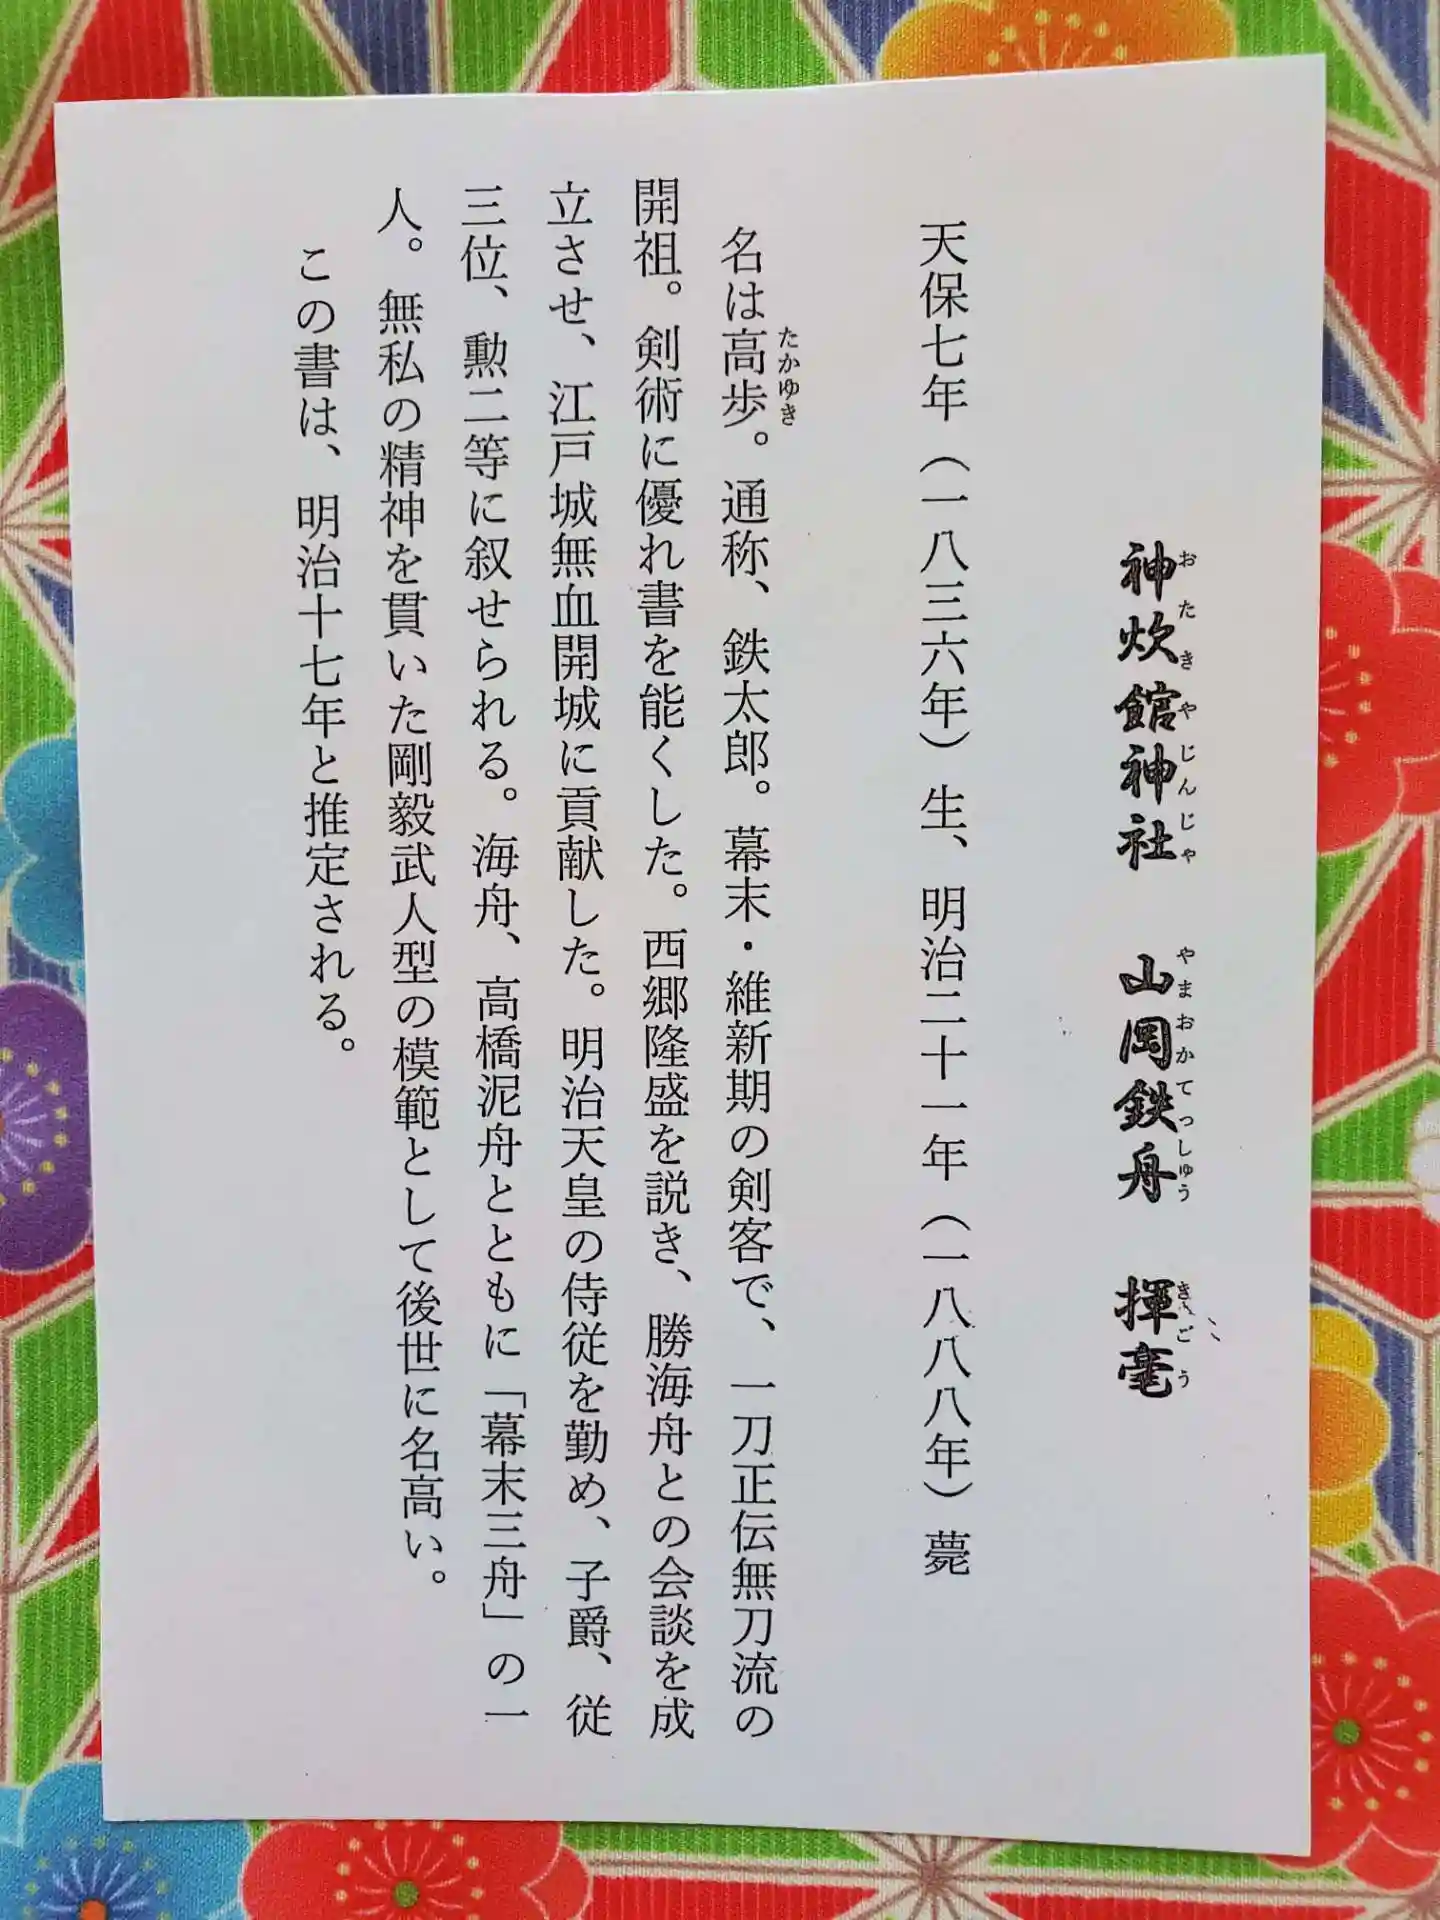 神炊館神社 山岡鉄舟 揮毫
おたきやじんじゃ やまおかてっしゅう きごう
天保七年（一八三六年）生、明治二十一年（一八八八年）薨
名は高歩。通称、鉄太郎。幕末・維新期の剣客で、一刀正伝無刀流の
たかゆき
開祖。剣術に優れ書を能くした。西郷隆盛を説き、勝海舟との会談を成
立させ、江戸城無血開城に貢献した。明治天皇の侍従を勤め、子爵、従
三位、勲二等に叙せられる。海舟、高橋泥舟とともに「幕末三舟」の一
人。無私の精神を貫いた剛毅武人型の模範として後世に名高い。
この書は、明治十七年と推定される。